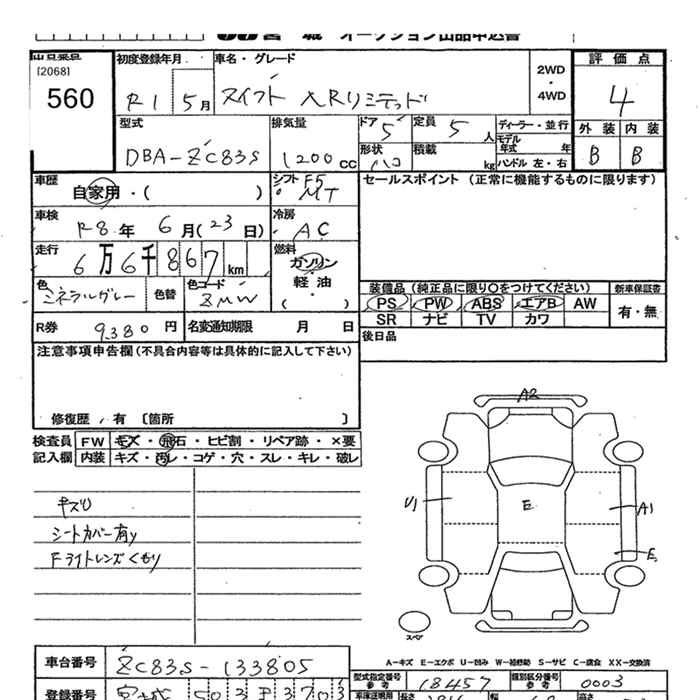 宮城 オークション出品申込書
出品番号 初度登録年月 車名・グレード 評価点
[2068]
560 R1 5月 スイフト XRリミテッド 2WD ・ 4WD 4
型式 排気量 ドア 5 定員 5人 ディーラー・並行 外装 内装
モデル年式 年
DBA-ZC83S 1200cc 形状 ハコ 積載 kg ハンドル 左・右 B B
車歴 シフト F5 セールスポイント (正常に機能するものに限ります)
自家用・( ) MT
車検 冷房
R8年 6月(23日) AC
走行 燃料
6万6千867km ガソリン
色 カラーコード 軽油
ミネラルグレー 色替 ZMW ( )
装備品(純正品に限り○をつけてください) 新車保証書
PS PW ABS エアB AW 有・無
SR ナビ TV カワ
R券 9,380円 名変通知期限 月 日
後日品
注意事項申告欄(不具合内容等は具体的に記入して下さい)
修復歴,有 〔箇所 〕
検査員 FW キズ・飛石・ヒビ割・リペア跡・×要
記入欄 内装 キズ・汚レ・コゲ・穴・スレ・キレ・破レ
A2
キズU
シートカバー有り
Fライトレンズくもり
U1 E A1
E
スペア
A-キズ E-エクボ U-凹み W-補修跡 S-サビ C-腐食 XX-交換済
車台番号 ZC83S-133805
型式指定番号 参考 18457 類別区分番号 参考 0003
登録番号 宮城 503
車庫証明用 長さ 幅 高さ